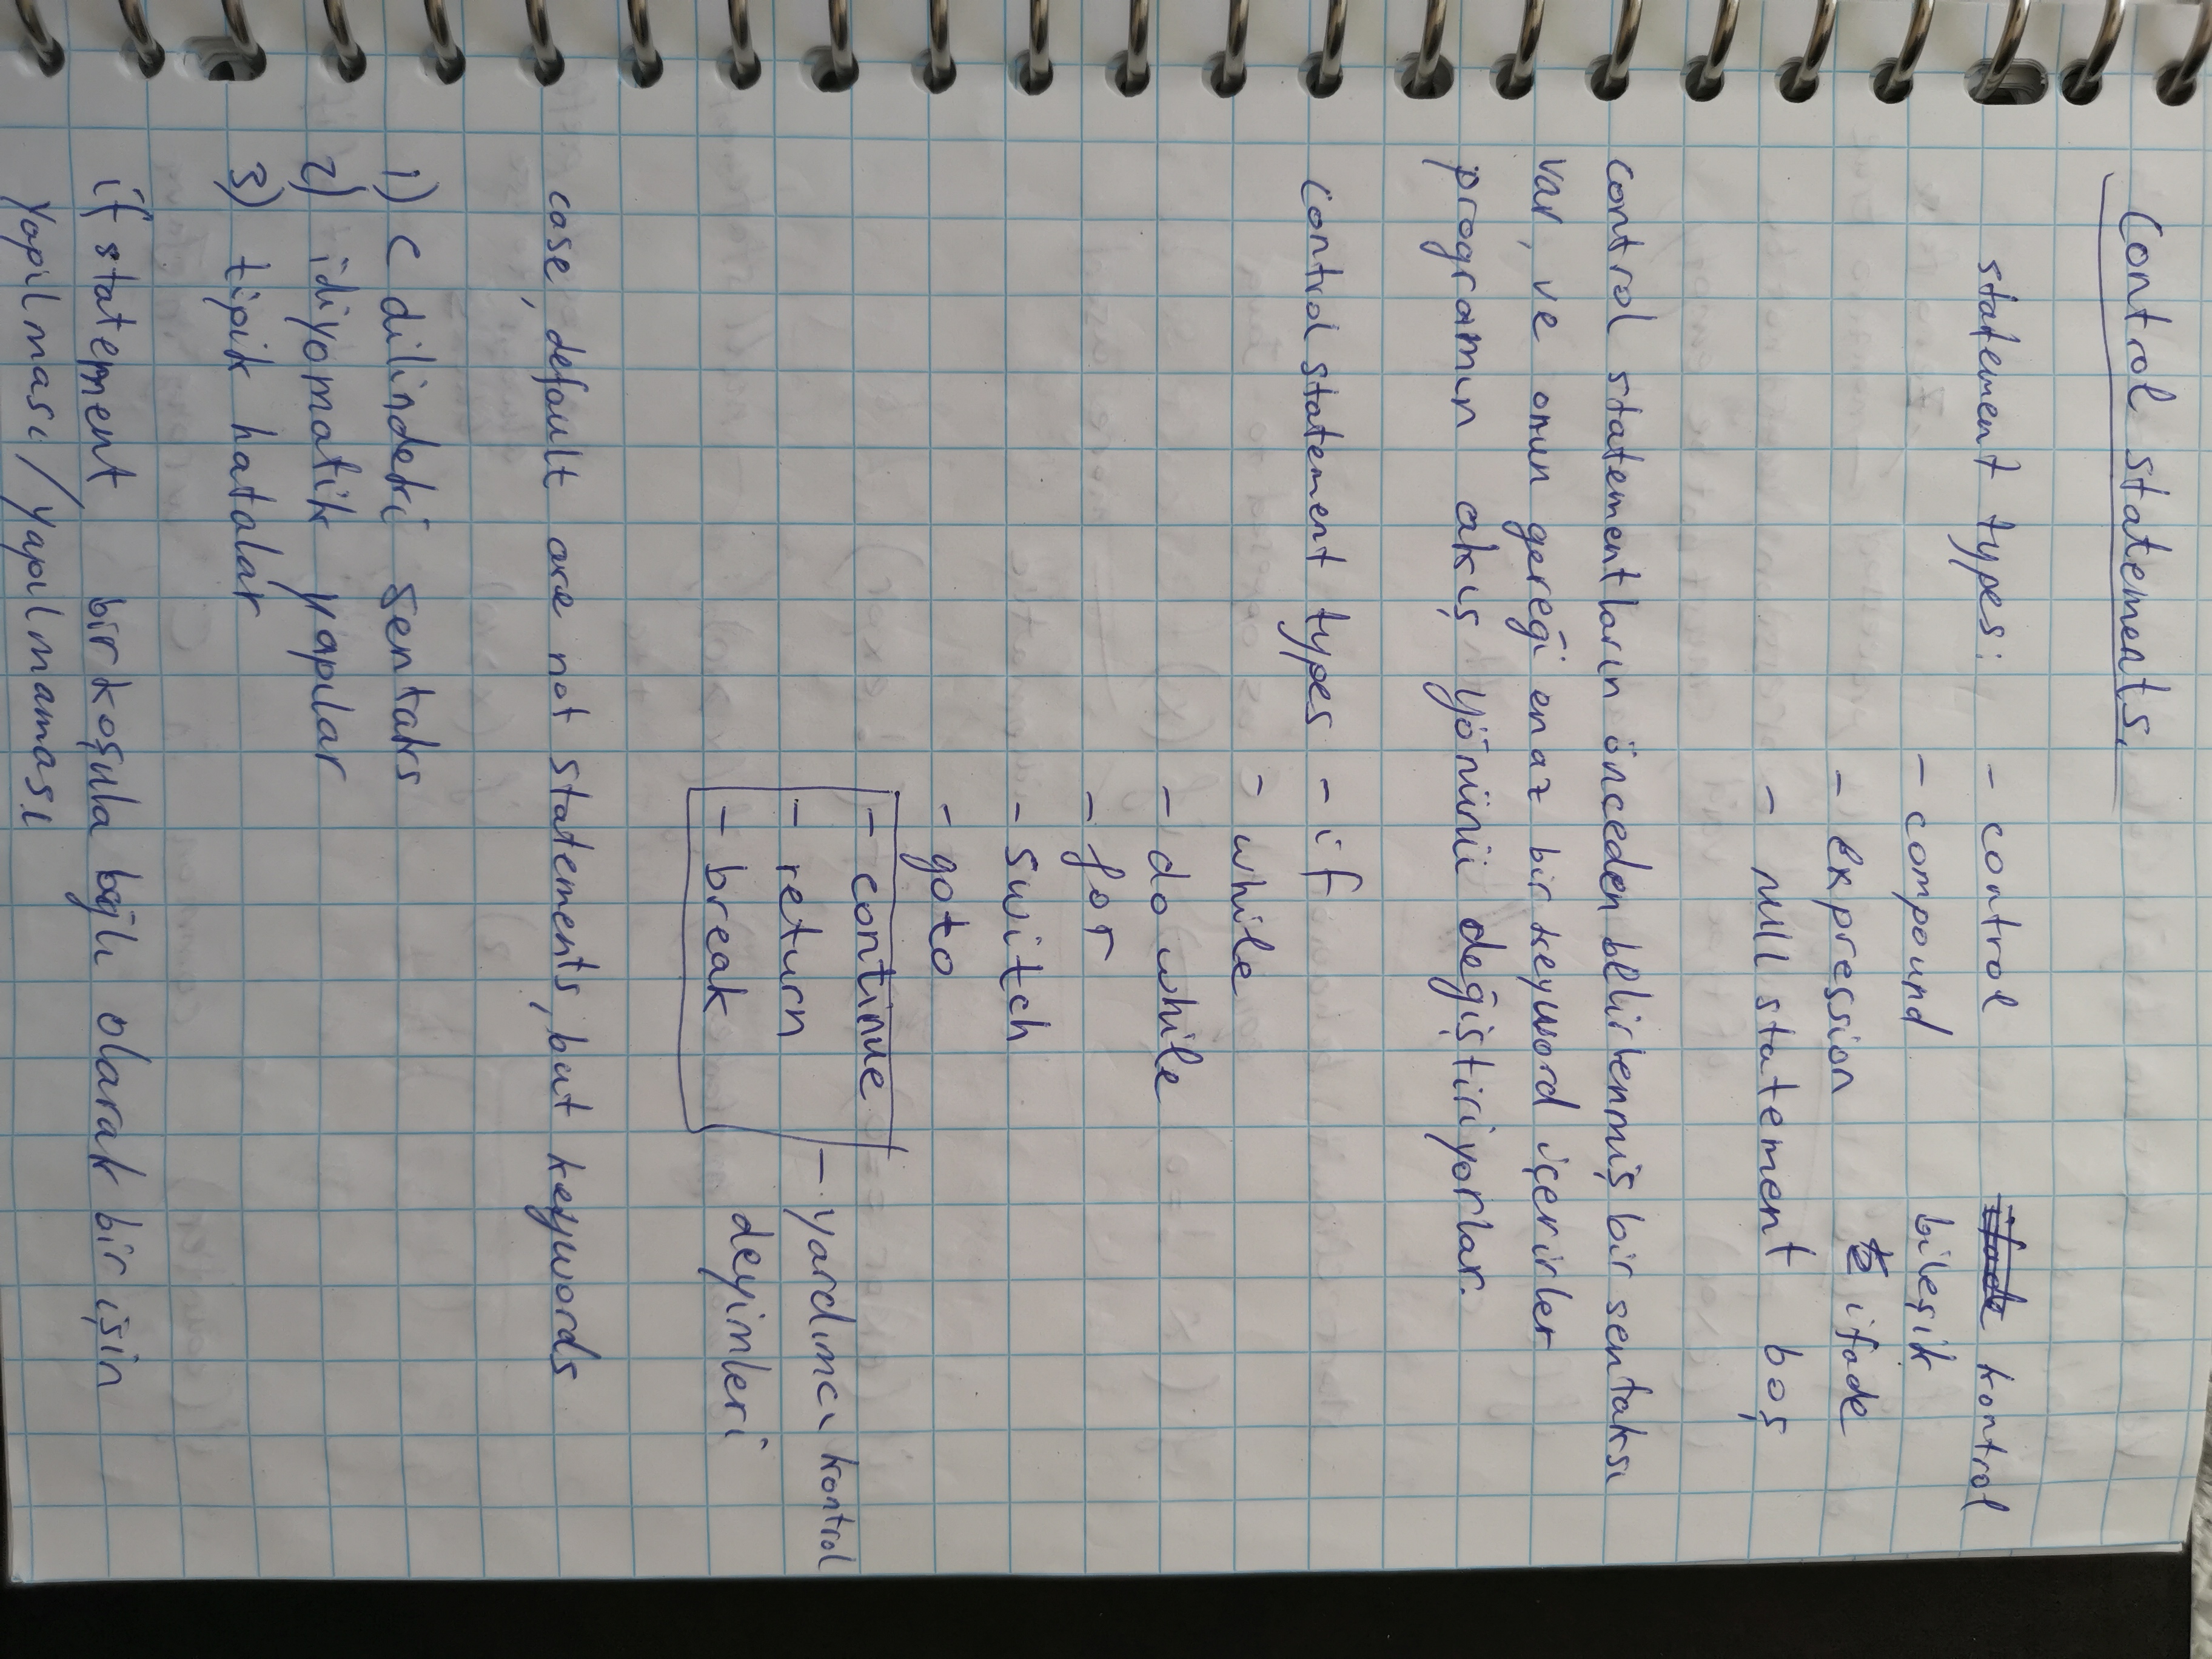 Control statements.
statement types: - control kontrol
- compound bileşik
- expression ifade
- null statement boş
control statementların önceden belirlenmiş bir sentaksı
var, ve onun gereği en az bir keyword içerirler
programın akış yönünü değiştiriyorlar.
control statement types - if
- while
- do while
- for
- switch
- goto
- continue
- return
- break
- yardımcı kontrol
deyimleri
case, default are not statements, but keywords
1) C dilindeki sentaks
2) idiyomatik yapılar
3) tipik hatalar
if statement bir koşula bağlı olarak bir işin
yapılması/yapılmaması